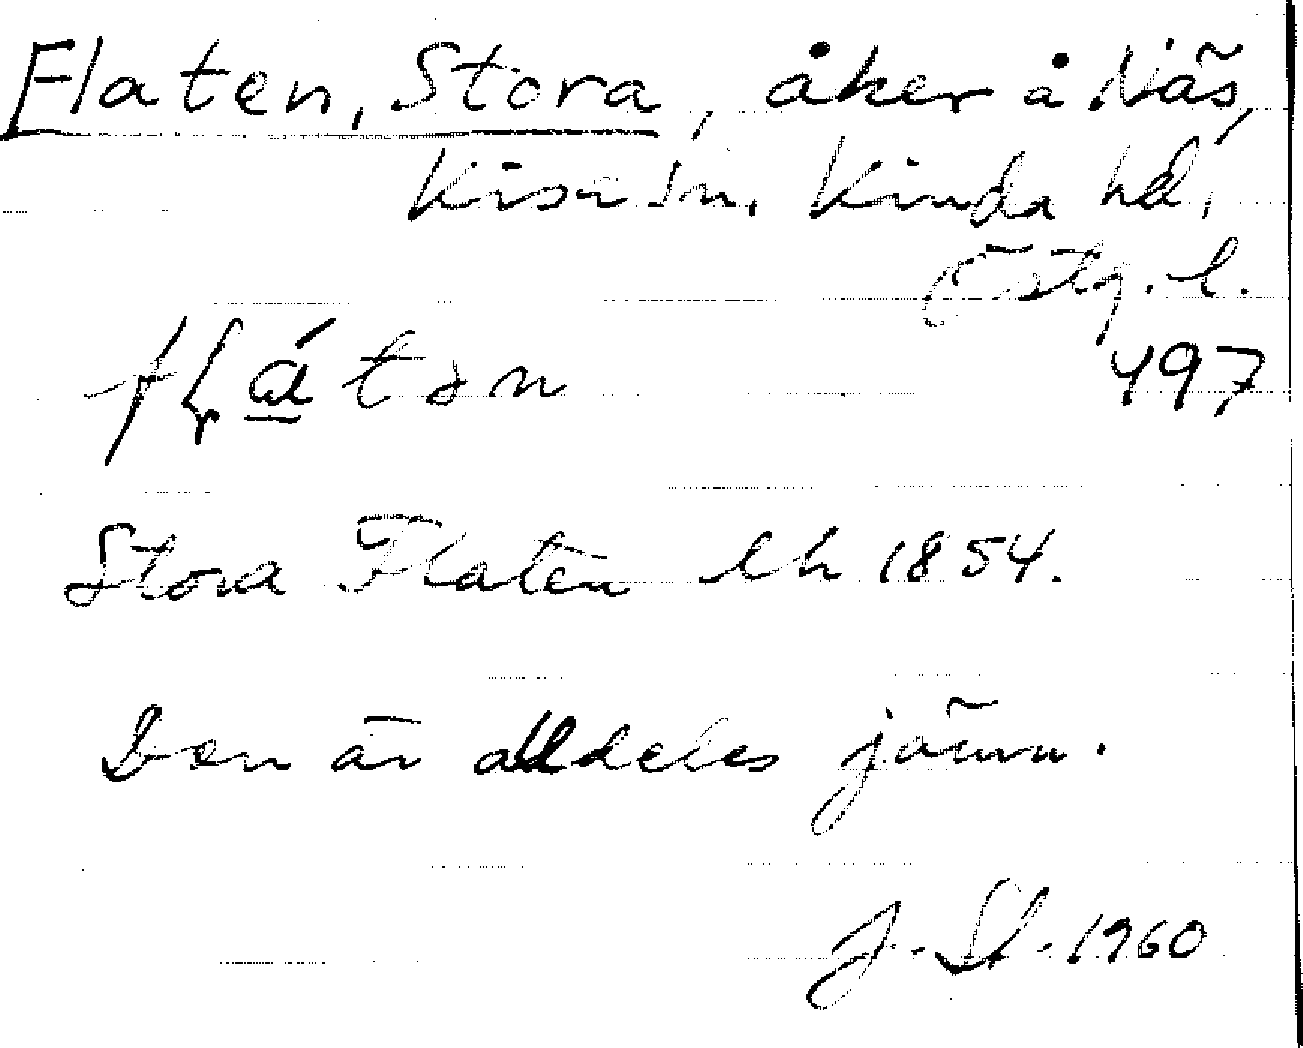 Flaten, Stora, åker å Näs,
Kisa sn. Kinda hd,
Östg. l.
497
Stora Flaten lh 1854.
Den är alldeles jämn.
J. St. 1960